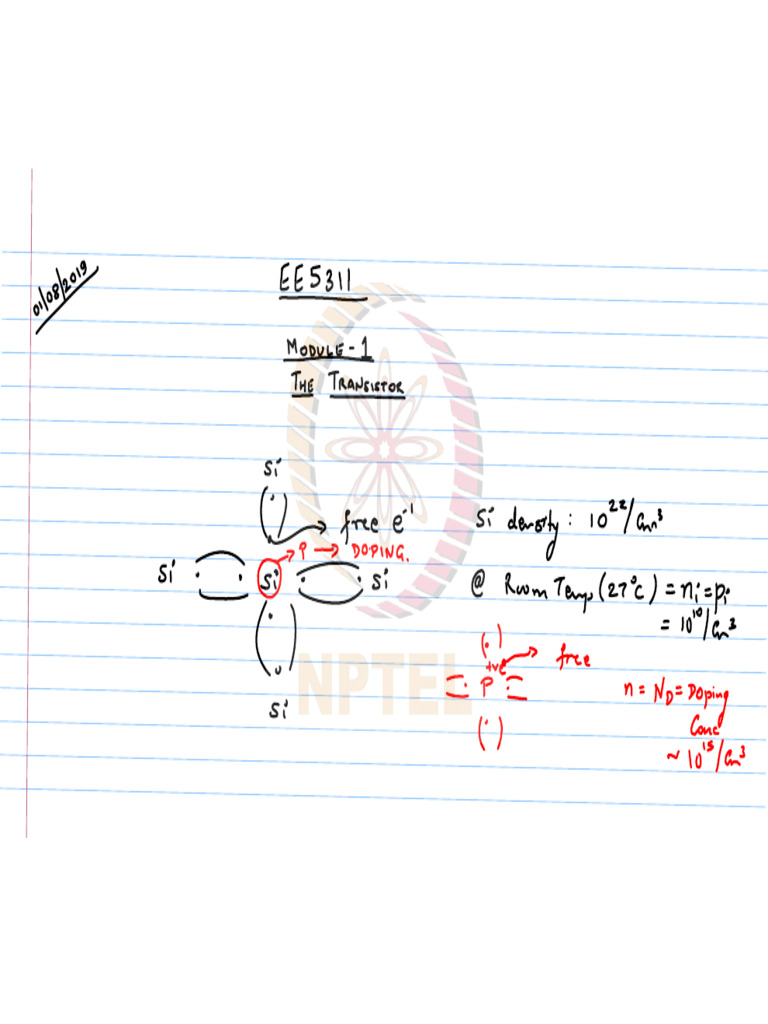 01/08/2019
EE5311
MODULE-1
THE TRANSISTOR
Si
free e⁻¹
P → DOPING.
Si Si Si
Si
Si density: 10²²/cm³
@ Room Temp (27°C) = nᵢ = pᵢ
= 10¹⁰/cm³
+ve
free
P
n = N_D = Doping
Conc
~ 10¹⁵/cm³
NPTEL